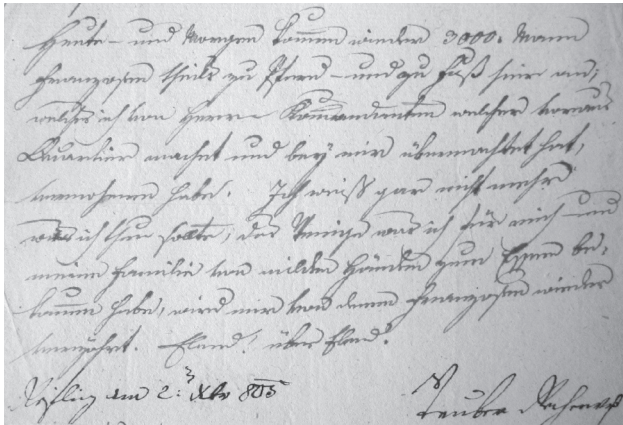 Heute – und Morgen kommen wieder 3000. Mann
Franzosen theils zu Pferd – und zu Fuß hier an,
welches ich von Herrn Kommandanten welcher voraus
Quartier machet und bey mir übernachtet hat,
vernohmen habe. Ich weiß gar nicht mehr
was ich thun sollte, das Wenige was ich für mich und
meine Familie von milden Händen zum Essen be,
kommen habe, wird mir von denen Franzosen wieder
verzöhrt. Elend! über Elend!
am 2: Xbr 805